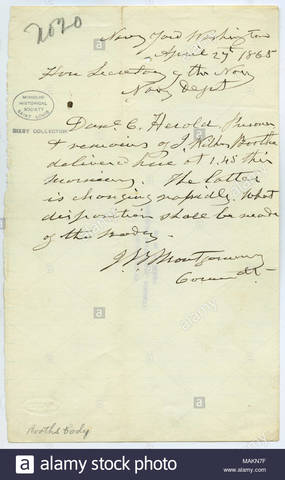 2020
Navy Yard Washington
April 27 1865
Hon Secretary of the Navy
Navy Dept
MISSOURI
HISTORICAL
SOCIETY
SAINT LOUIS
BIXBY COLLECTION
Danl C. Herold Prisoner
& remains of J. Wilkes Boothe
delivered here at 1.45 this
morning. The latter
is changing rapidly. What
disposition shall be made
of the body.
J B Montgomery
Comndt.
Booths body
alamy
a alamy stock photo
MAKN7F
www.alamy.com